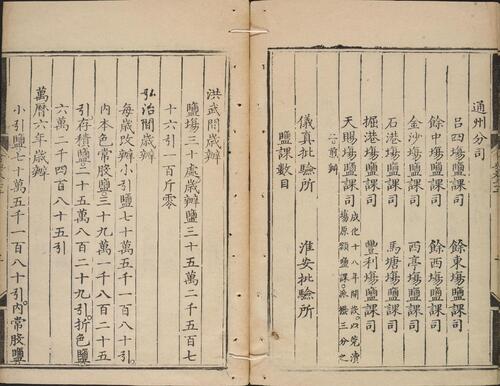 通州分司
呂四塲鹽課司 餘東塲鹽課司
餘中塲鹽課司 餘西塲鹽課司
金沙塲鹽課司 西亭塲鹽課司
石港塲鹽課司 馬塘塲鹽課司
掘港塲鹽課司 豐利塲鹽課司
天賜塲鹽課司 成化十八年開設以莞瀆
塲原額鹽課派撥三分之
煎辦
儀真批驗所 淮安批驗所
鹽課數目
洪武間歲辦
鹽塲三十處歲辦鹽三十五萬二千五百七
十六引一百斤零
弘治間歲辦
每歲改辦小引鹽七十萬五千一百八十引
內本色常股鹽三十九萬一千八百二十五
引存積鹽三十五萬八百二十九引折色鹽
六萬二千四百八十五引
萬曆六年歲辦
小引鹽七十萬五千一百八十引內常股鹽